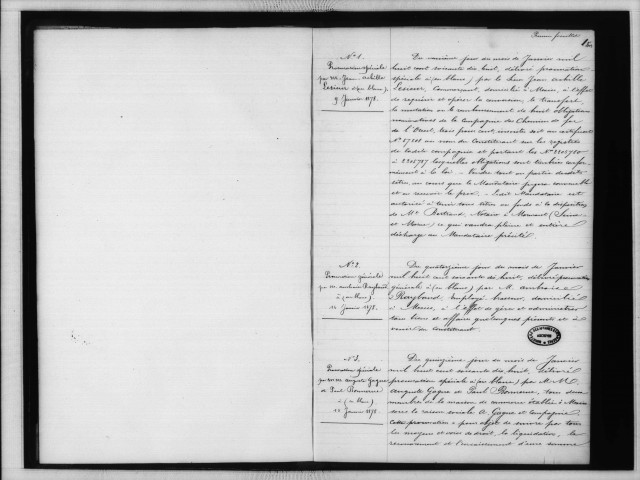 Premier feuillet
1
N° 1.
Procuration spéciale
par M. Jean Achille
Lesieur à (en blanc)
9 Janvier 1878.
Du neuvième jour du mois de Janvier mil
huit cent soixante dix huit, délivré procuration
spéciale à (en blanc) par le Sieur Jean Achille
Lesieur, Commerçant, domicilié à , à l'effet
de requérir et opérer la conversion, le transfert
la mutation ou le remboursement de huit obligations
nominatives de la Compagnie des Chemins de fer
de l'Ouest, trois pour cent, inscrites soit au certificat
N° au nom du Constituant sur les registres
de ladite compagnie et portant les Nos 2205780
à 2205787 lesquelles obligations sont timbrées confor-
mément à la loi. - Vendre tout ou partie desdits
titres, au cours que le Mandataire jugera convenable
et en recevoir le prix. - Ledit Mandataire est
autorisé à tenir tous titres ou fonds à la disposition
de Me Bertrand, Notaire à Mormant (Seine
et Marne) ce qui vaudra pleine et entière
décharge au Mandataire précité.
N° 2.
Procuration générale
par M. Ambroise Raybaud
à (en blanc).
14 Janvier 1878.
Du quatorzième jour du mois de Janvier
mil huit cent soixante dix huit, délivré procuration
générale à (en blanc) par M. Ambroise
Raybaud, Employé, domicilié
à , à l'effet de gérer et administrer
tous biens et affaires quelconques présents et à
venir du constituant.
N° 3.
Procuration spéciale
par MM. Auguste Gogue
et Paul
à (en blanc)
15 Janvier 1878.
Du quinzième jour du mois de Janvier
mil huit cent soixante dix huit, délivré
procuration spéciale à (en blanc) par M.M.
Auguste Gogue et Paul , tous deux
membres de la maison de commerce établie à
sous la raison sociale A. Gogue et Compagnie
Cette procuration a pour objet de suivre par tous
les moyens et voies de droit, la liquidation, le
recouvrement et l'encaissement d'une somme